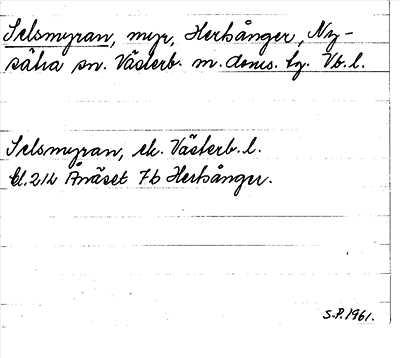 Selsmyran, myr, Herrånger, Ny-
sätra sn. Västerb. m. doms. fg. Vb. l.
Selsmyran, ek. Västerb. l.
bl. 214 Ånäset 7b Herrånger.
S.P. 1961.